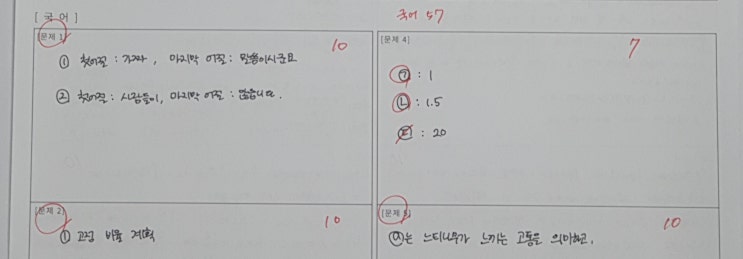 [ 국 어 ]
국어 57
[문제 1]
10
① 첫어절 : 가짜, 마지막 어절 : 말씀이시군요
② 첫어절 : 사람들이, 마지막 어절 : 없습니다.
[문제 2]
10
① 고정 비율 계획
[문제 4]
7
㉠ : 1
㉡ : 1.5
㉢ : 20
[문제 5]
10
ⓐ는 느티나무가 느끼는 고통을 의미하고,